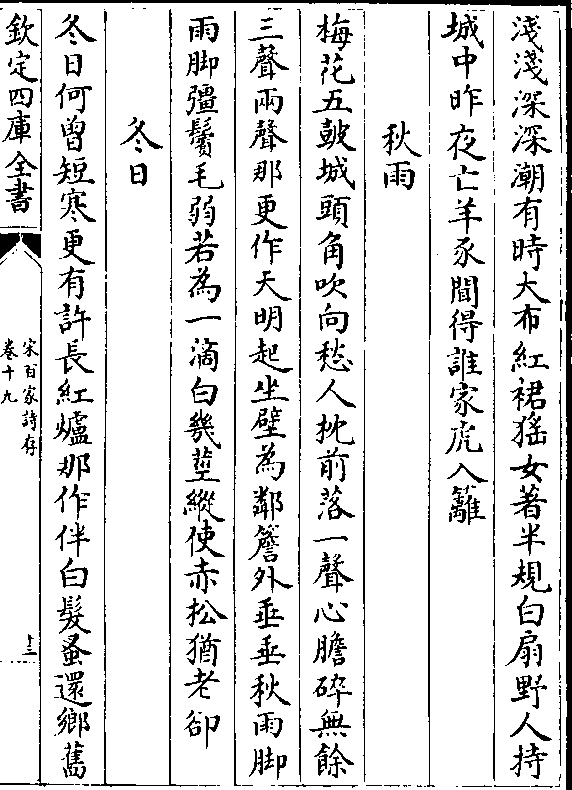 淺淺深深潮有時大布紅裙猺女著半規白扇野人持
城中昨夜亡羊豕聞得誰家虎入籬
秋雨
梅花五皷城頭角吹向愁人枕前落一聲心膽碎無餘
三聲兩聲那更作天明起坐壁為鄰簷外垂垂秋雨脚
雨脚彊鬢毛弱若為一滴白幾莖縱使赤松猶老卻
冬日
冬日何曽短寒更有許長紅爐那作伴白髮蚤還鄉舊
欽定四庫全書
宋百家詩存
卷十九
十三